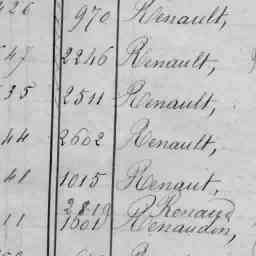 426 970 Renault,
47 2246 Renault,
35 2511 Renault,
44 2602 Renault,
41 1015 Renaut,
Renaud
11 1001 Renaudin,